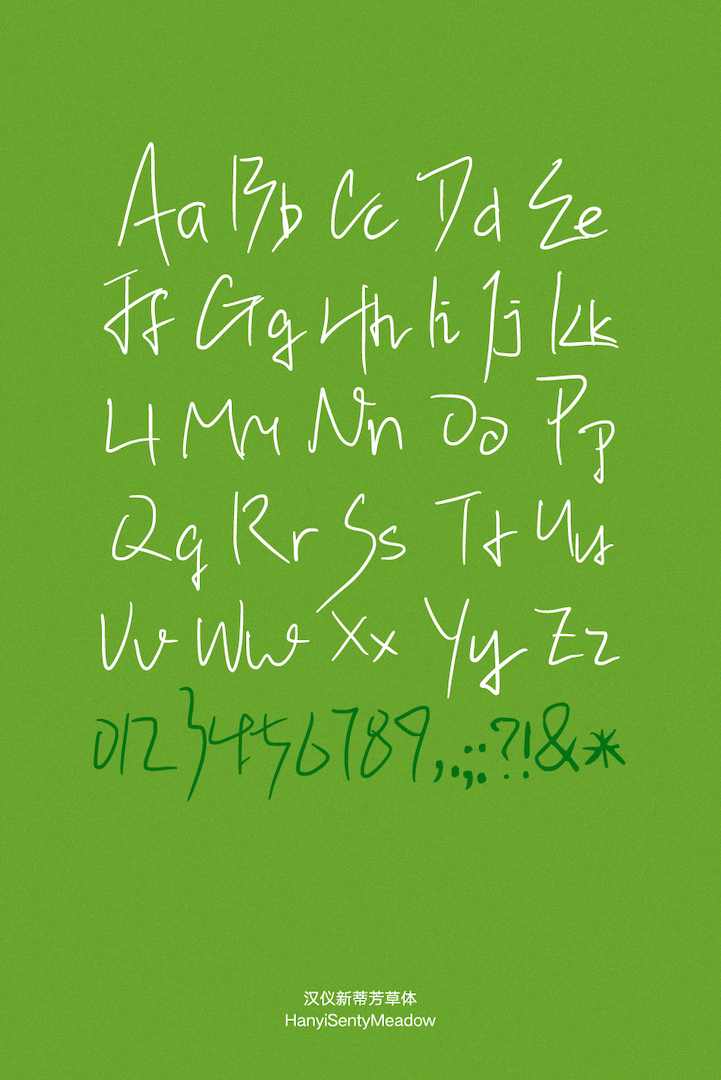 Aa Bb Cc Dd Ee
Ff Gg Hh Ii Jj Kk
Ll Mm Nn Oo Pp
Qq Rr Ss Tt Uu
Vv Ww Xx Yy Zz
0123456789,.;:?!&*
汉仪新蒂芳草体
HanyiSentyMeadow